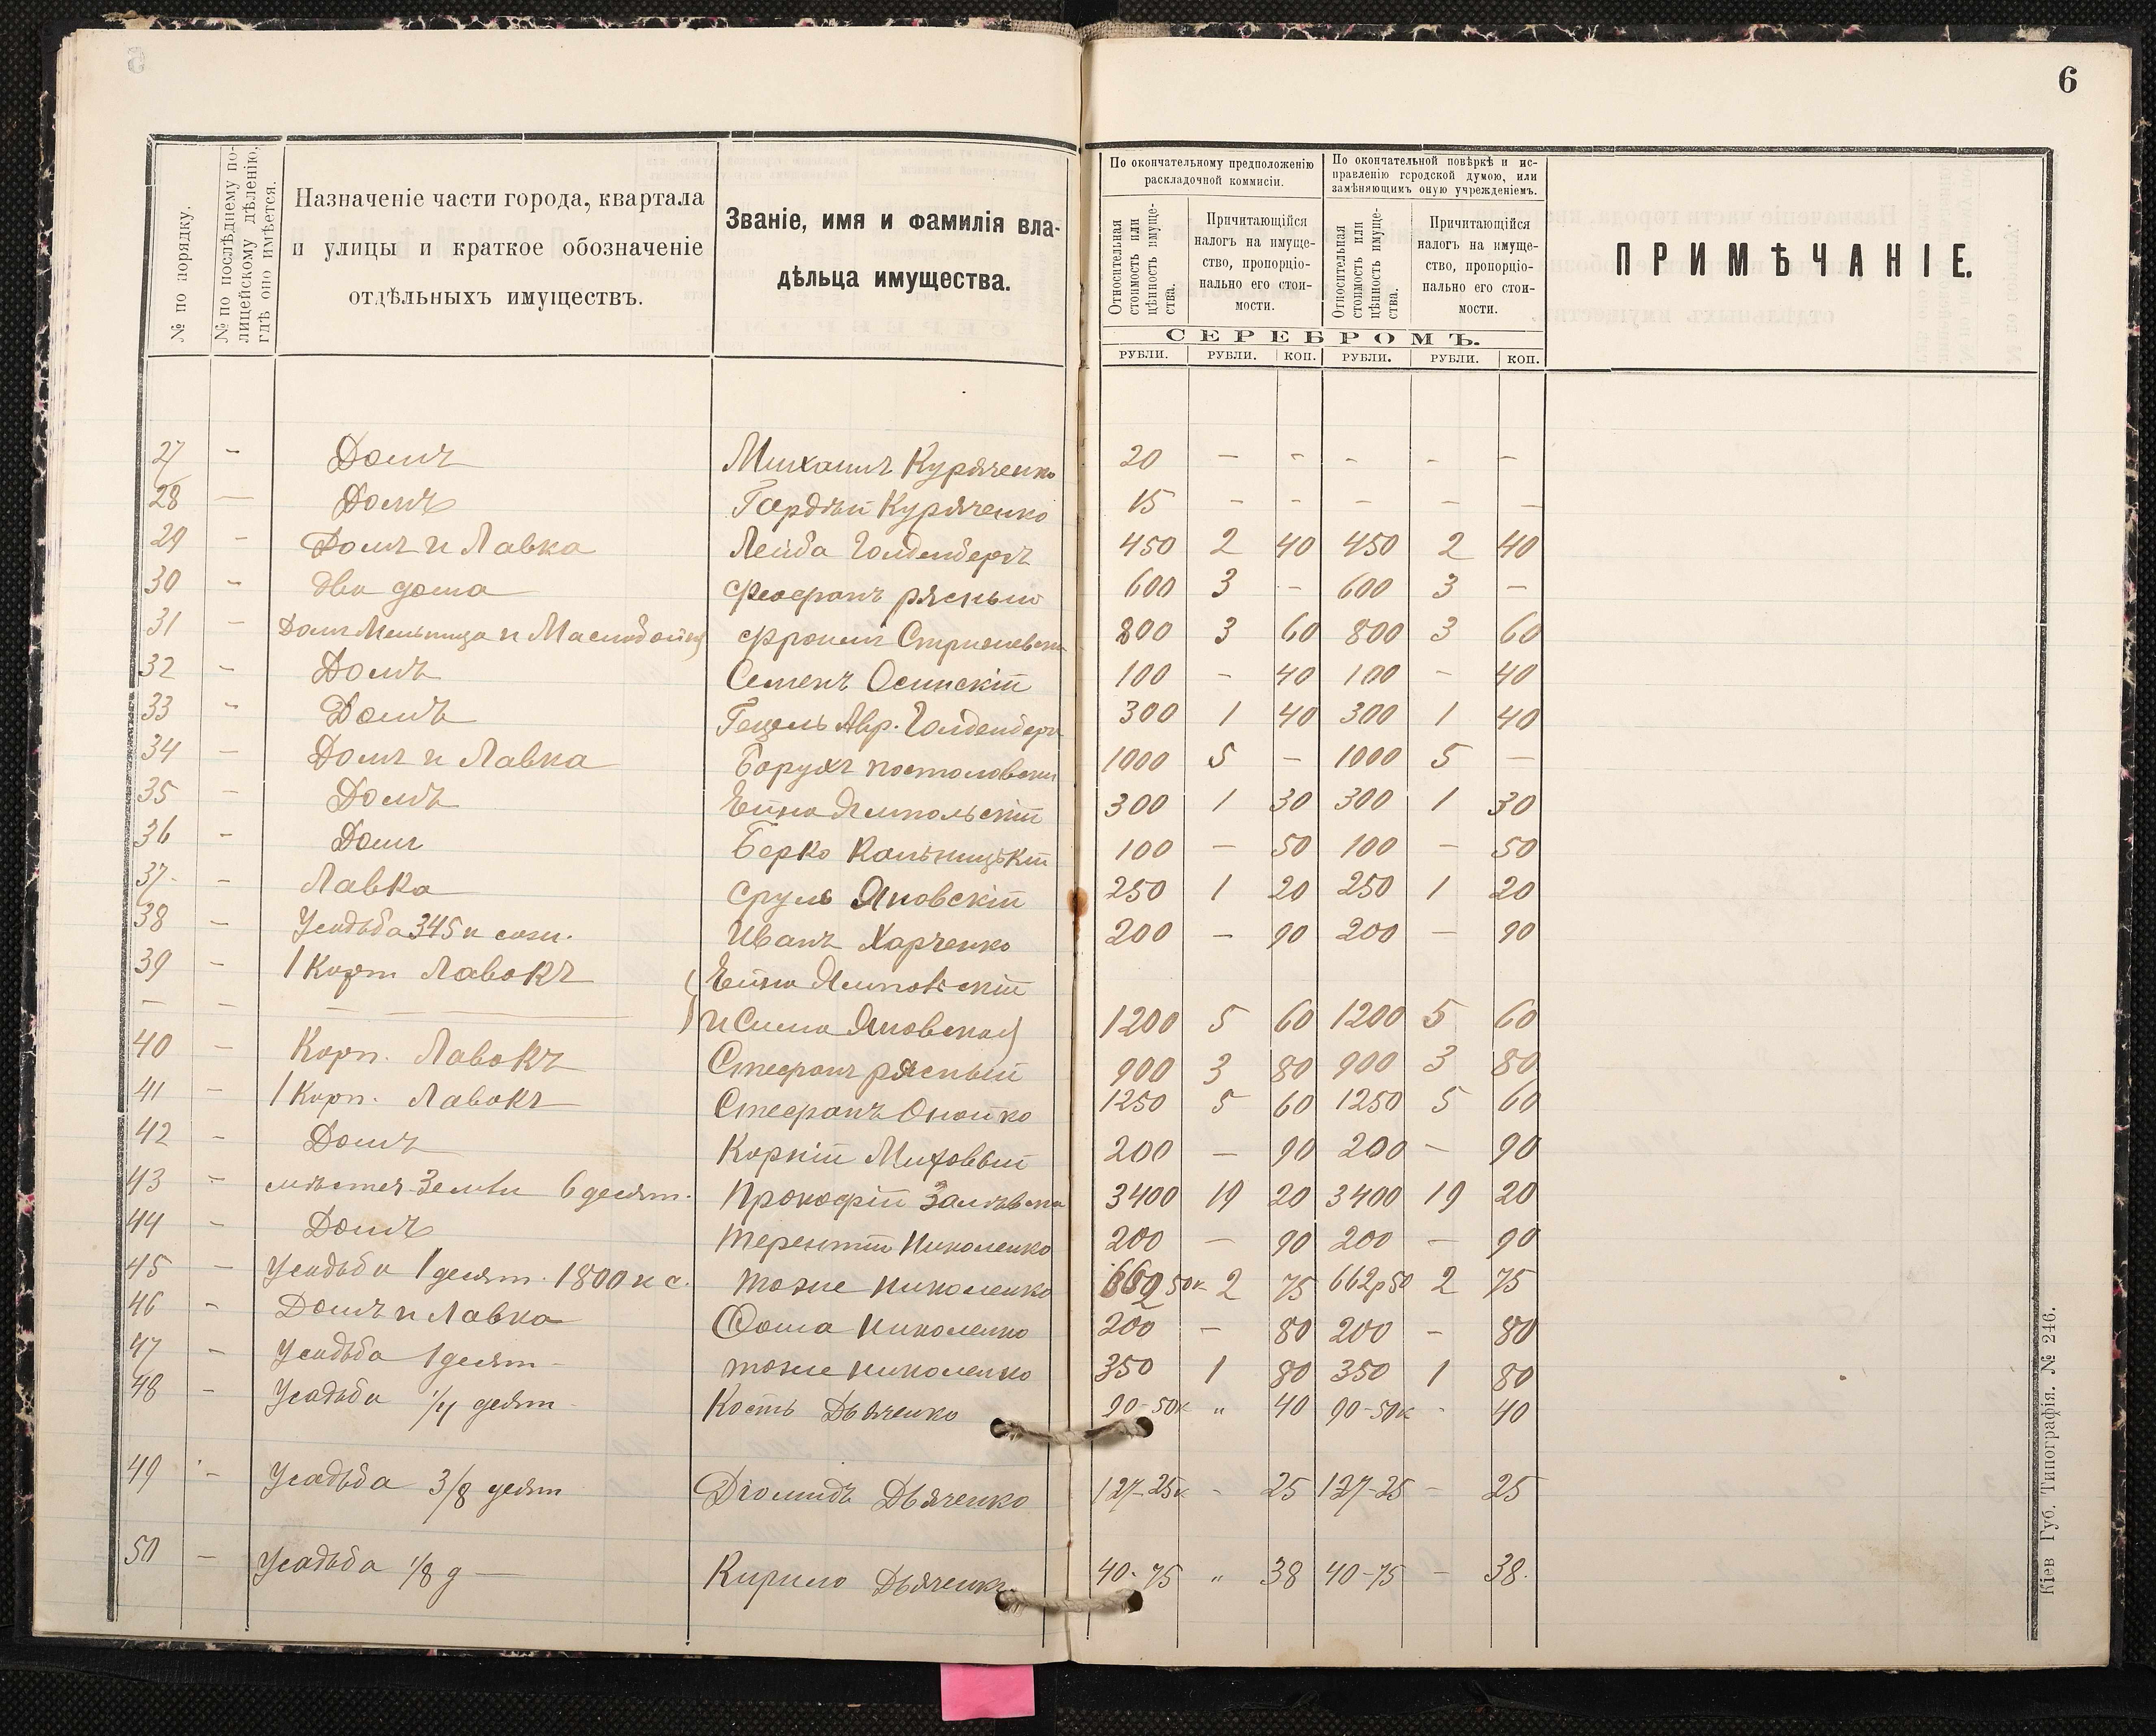 6
№ по порядку.
№ по послѣднему по-
лицейскому дѣленію,
гдѣ оно имѣется.
Назначеніе части города, квартала
и улицы и краткое обозначеніе
отдѣльныхъ имуществъ.
Званіе, имя и фамилія вла-
дѣльца имущества.
По окончательному предположенію
раскладочной коммисіи.
По окончательной повѣркѣ и ис-
правленію городской думою, или
замѣняющимъ оную учрежденіемъ.
Относительная
стоимость или
цѣнность имуще-
ства.
Причитающійся
налогъ на имуще-
ство, пропорціо-
нально его стои-
мости.
Относительная
стоимость или
цѣнность имуще-
ства.
Причитающійся
налогъ на имуще-
ство, пропорціо-
нально его стои-
мости.
ПРИМѢЧАНІЕ.
СЕРЕБРОМЪ.
РУБЛИ. РУБЛИ. КОП. РУБЛИ. РУБЛИ. КОП.
27 - Домъ Михаилъ Куряченко 20 - - - - -
28 - Домъ Гордѣй Куряченко 15 - - - - -
29 - Домъ и Лавка Лейба Голденбергъ 450 2 40 450 2 40
30 - Два дома Феофанъ Рясный 600 3 - 600 3 -
31 - Домъ Мельница и Маслобойня 800 3 60 800 3 60
32 - Домъ Семенъ Осинскій 100 - 40 100 - 40
33 - Домъ Гецель Авр. Голденберг 300 1 40 300 1 40
34 - Домъ и Лавка Борухъ Постоловски 1000 5 - 1000 5 -
35 - Домъ Ейна Ямпольскій 300 1 30 300 1 30
36 - Домъ Берко Кальницькій 100 - 50 100 - 50
37 - Лавка Сруль Яновскій 250 1 20 250 1 20
38 - Усадьба 345 к саж. Иванъ Харченко 200 - 90 200 - 90
39 - 1 Корп Лавокъ Ейна
- - и Сима Яновская 1200 5 60 1200 5 60
40 - Корп. Лавокъ Стефанъ Рясный 900 3 80 900 3 80
41 - 1 Корп. Лавокъ Стефанъ 1250 5 60 1250 5 60
42 - Домъ Корній 200 - 90 200 - 90
43 - Земли 6 десят. Прокофій 3400 19 20 3400 19 20
44 - Домъ Терентій Николенко 200 - 90 200 - 90
45 - Усадьба 1 десят. 1800 к с. тоже Николенко 662 50к 2 75 662р50 2 75
46 - Домъ и Лавка Фома Николенко 200 - 80 200 - 80
47 - Усадьба 1 десят - тоже Николенко 350 1 80 350 1 80
48 - Усадьба 1/4 десят - Кость Дьяченко 90-50к " 40 90-50к - 40
49 - Усадьба 3/8 десят Діомидъ Дьяченко 127-25к - 25 127-25 - 25
50 - Усадьба 1/8 д - Кирило Дьяченко 40-75 " 38 40-75 - 38.
Кіев Губ. Типографія. № 246.